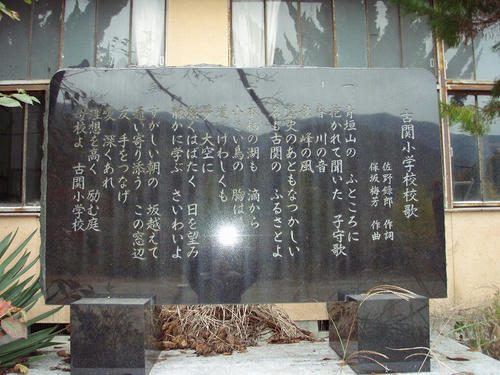 古関小学校校歌
佐野録郎 作詞
保坂梅芳 作曲
一、青垣山の ふところに
抱かれて聞いた 子守歌
川の音
峰の風
歴史のあともなつかしい
古関の ふるさとよ
の湖も 滴から
い鳥の 胸は
けわしくも
大空に
くはばたく 日を望み
静かに学ぶ さいわいよ
すがしい朝の 坂越えて
通い寄り添う この窓辺
手をつなげ
深くあれ
理想を高く 励む庭
母校よ 古関小学校